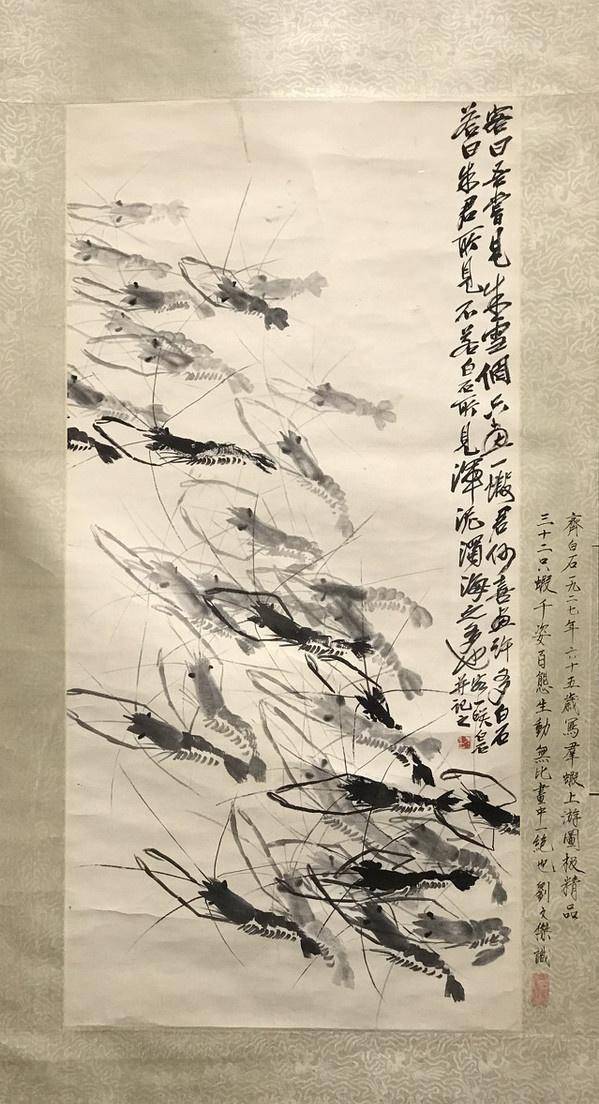 客曰吾嘗見朱雪個只畫一蝦君何喜畫許多白石
答曰朱君所見不若白石所見渾泥濁海之多也
客一笑白石
并記之
齊白石一九二七年六十五歲寫羣蝦上游圖極精品
三十二只蝦千姿百態生動無比畫中一絕也劉文傑識